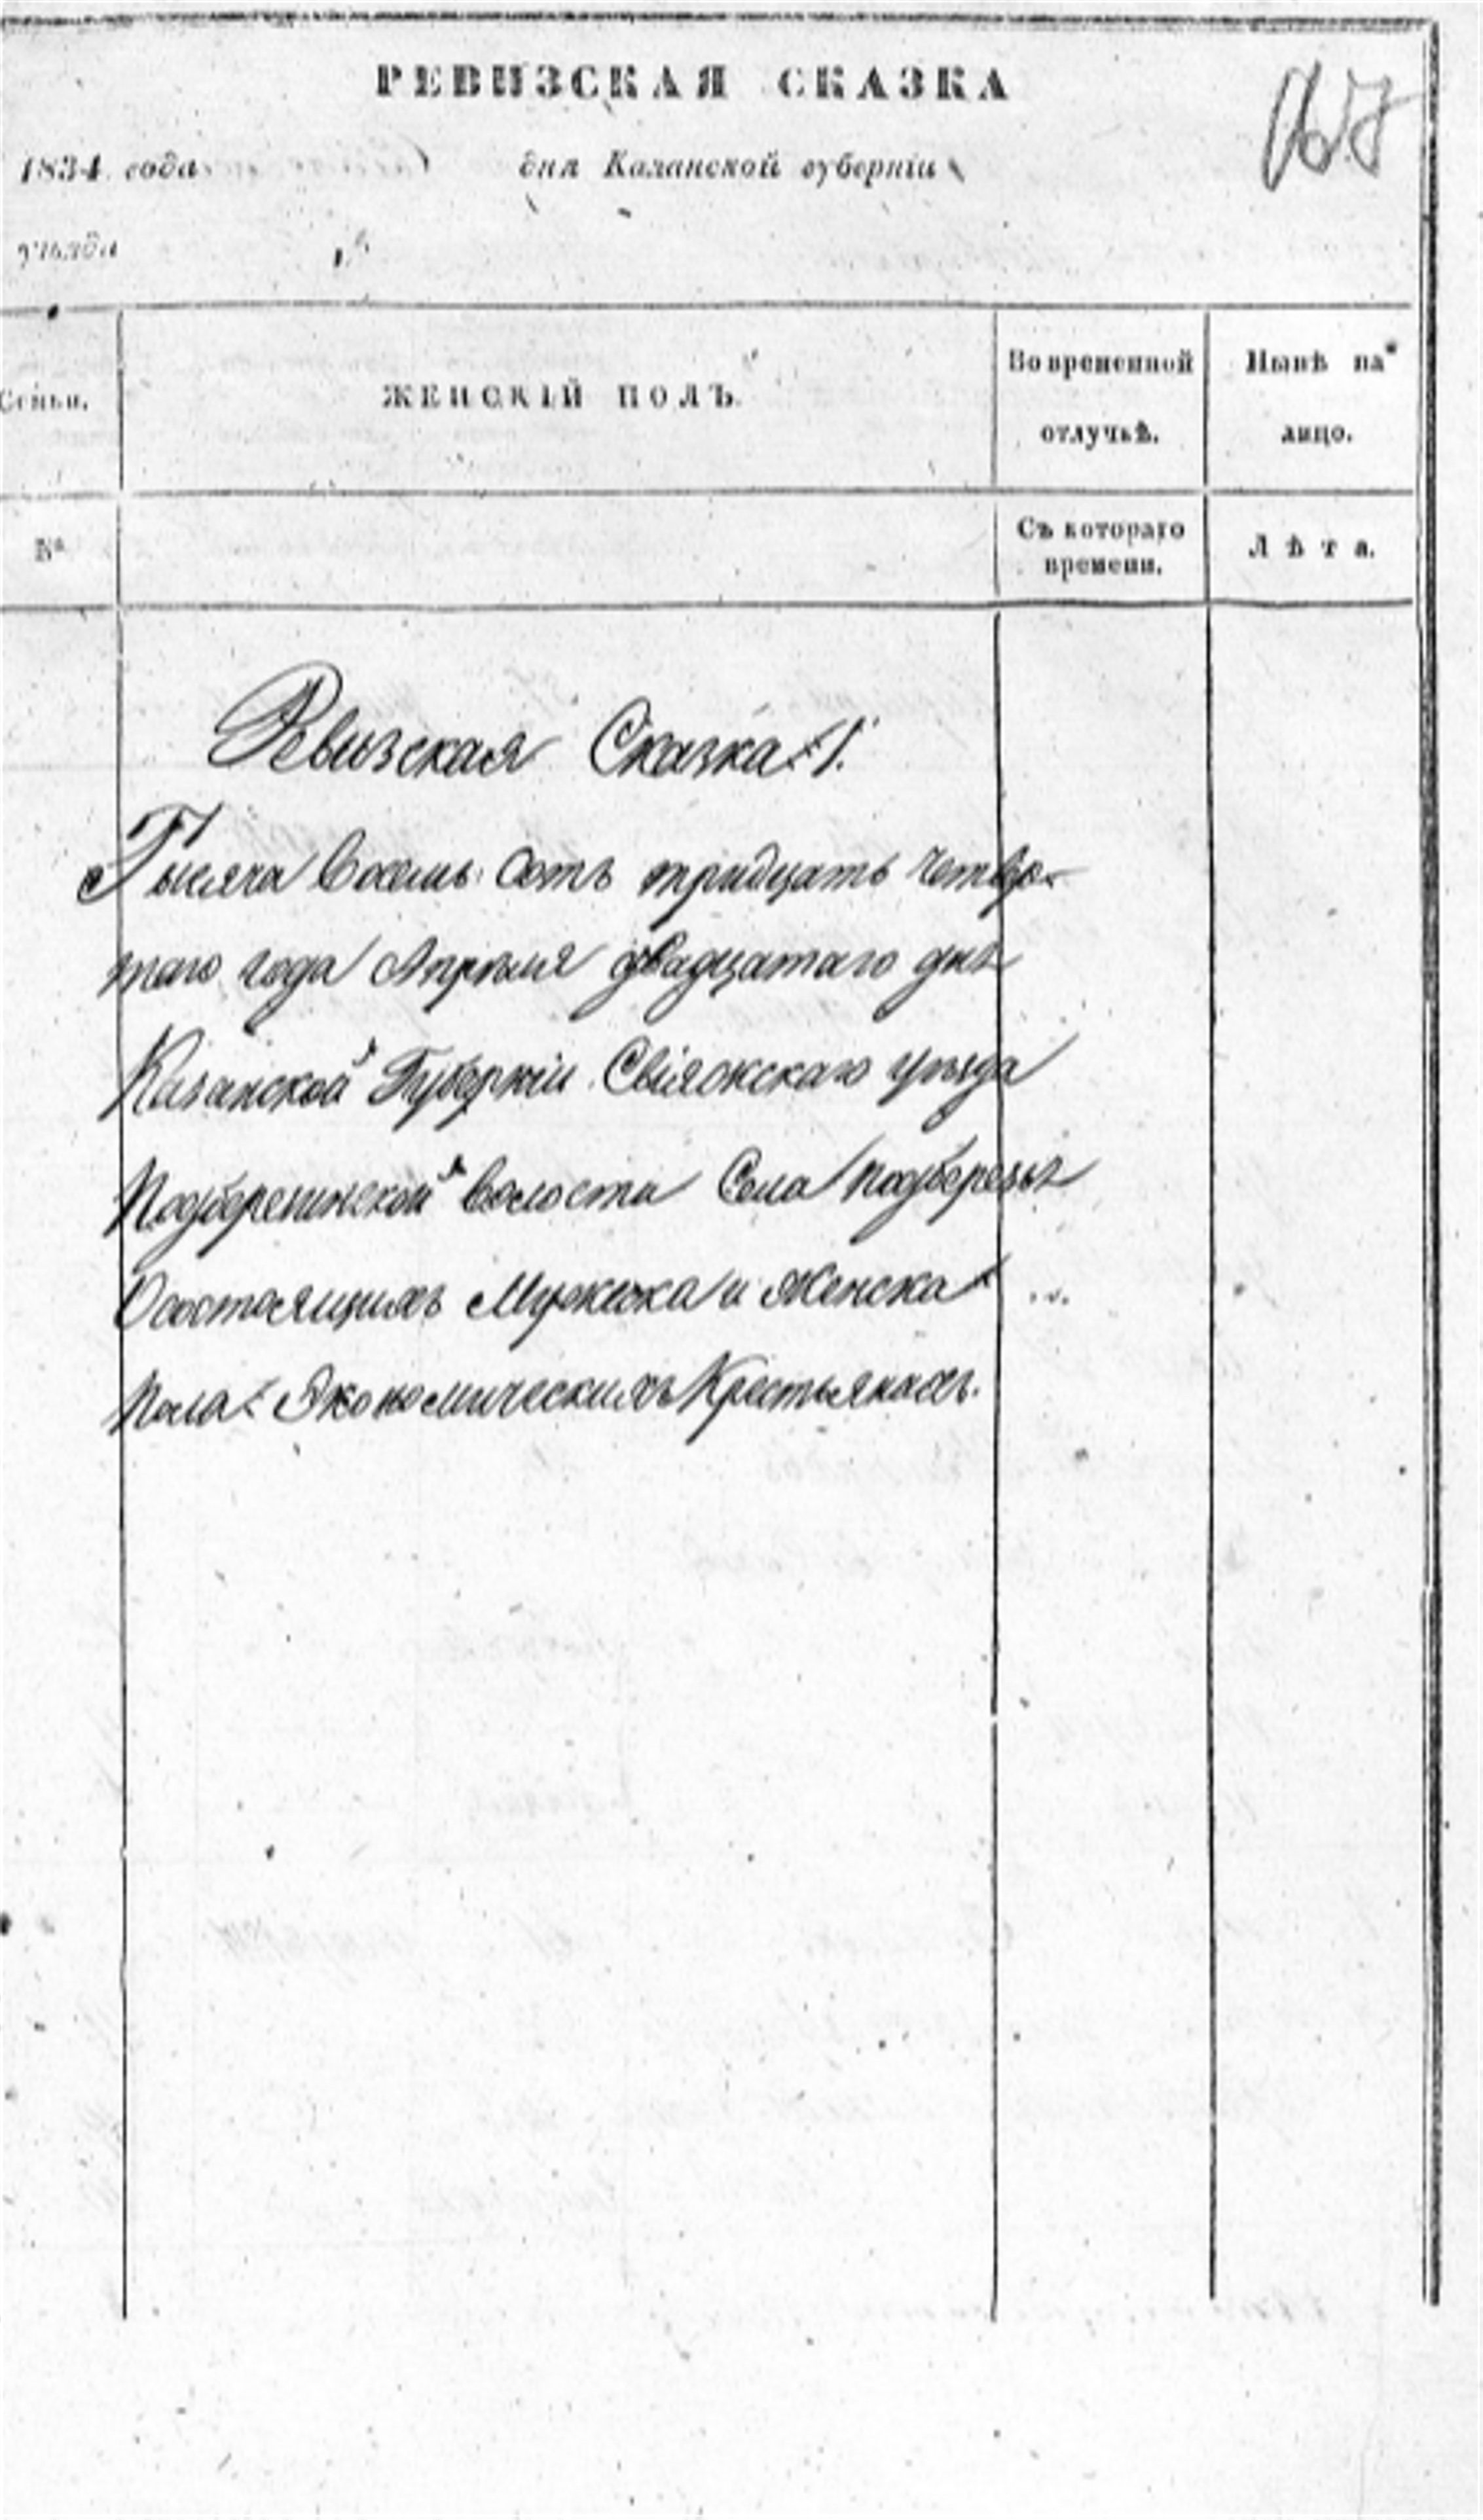 РЕВИЗСКАЯ СКАЗКА
1834 года дня Казанской губерніи
уѣзда
Семьи. ЖЕНСКІЙ ПОЛЪ. Во временной отлучкѣ. Нынѣ на лицо.
№ Съ котораго времени. Лѣта.
Ревизская Сказка
Тысяча восемь сотъ тридцать четвер-
таго года Апрѣля двадцатаго дня
Казанской Губерніи Свіяжскаго уѣзда
Подберезинской волости Села Подберезья
Осостоящихъ Мужеска и Женска
Пола Экономическихъ Крестьянахъ.